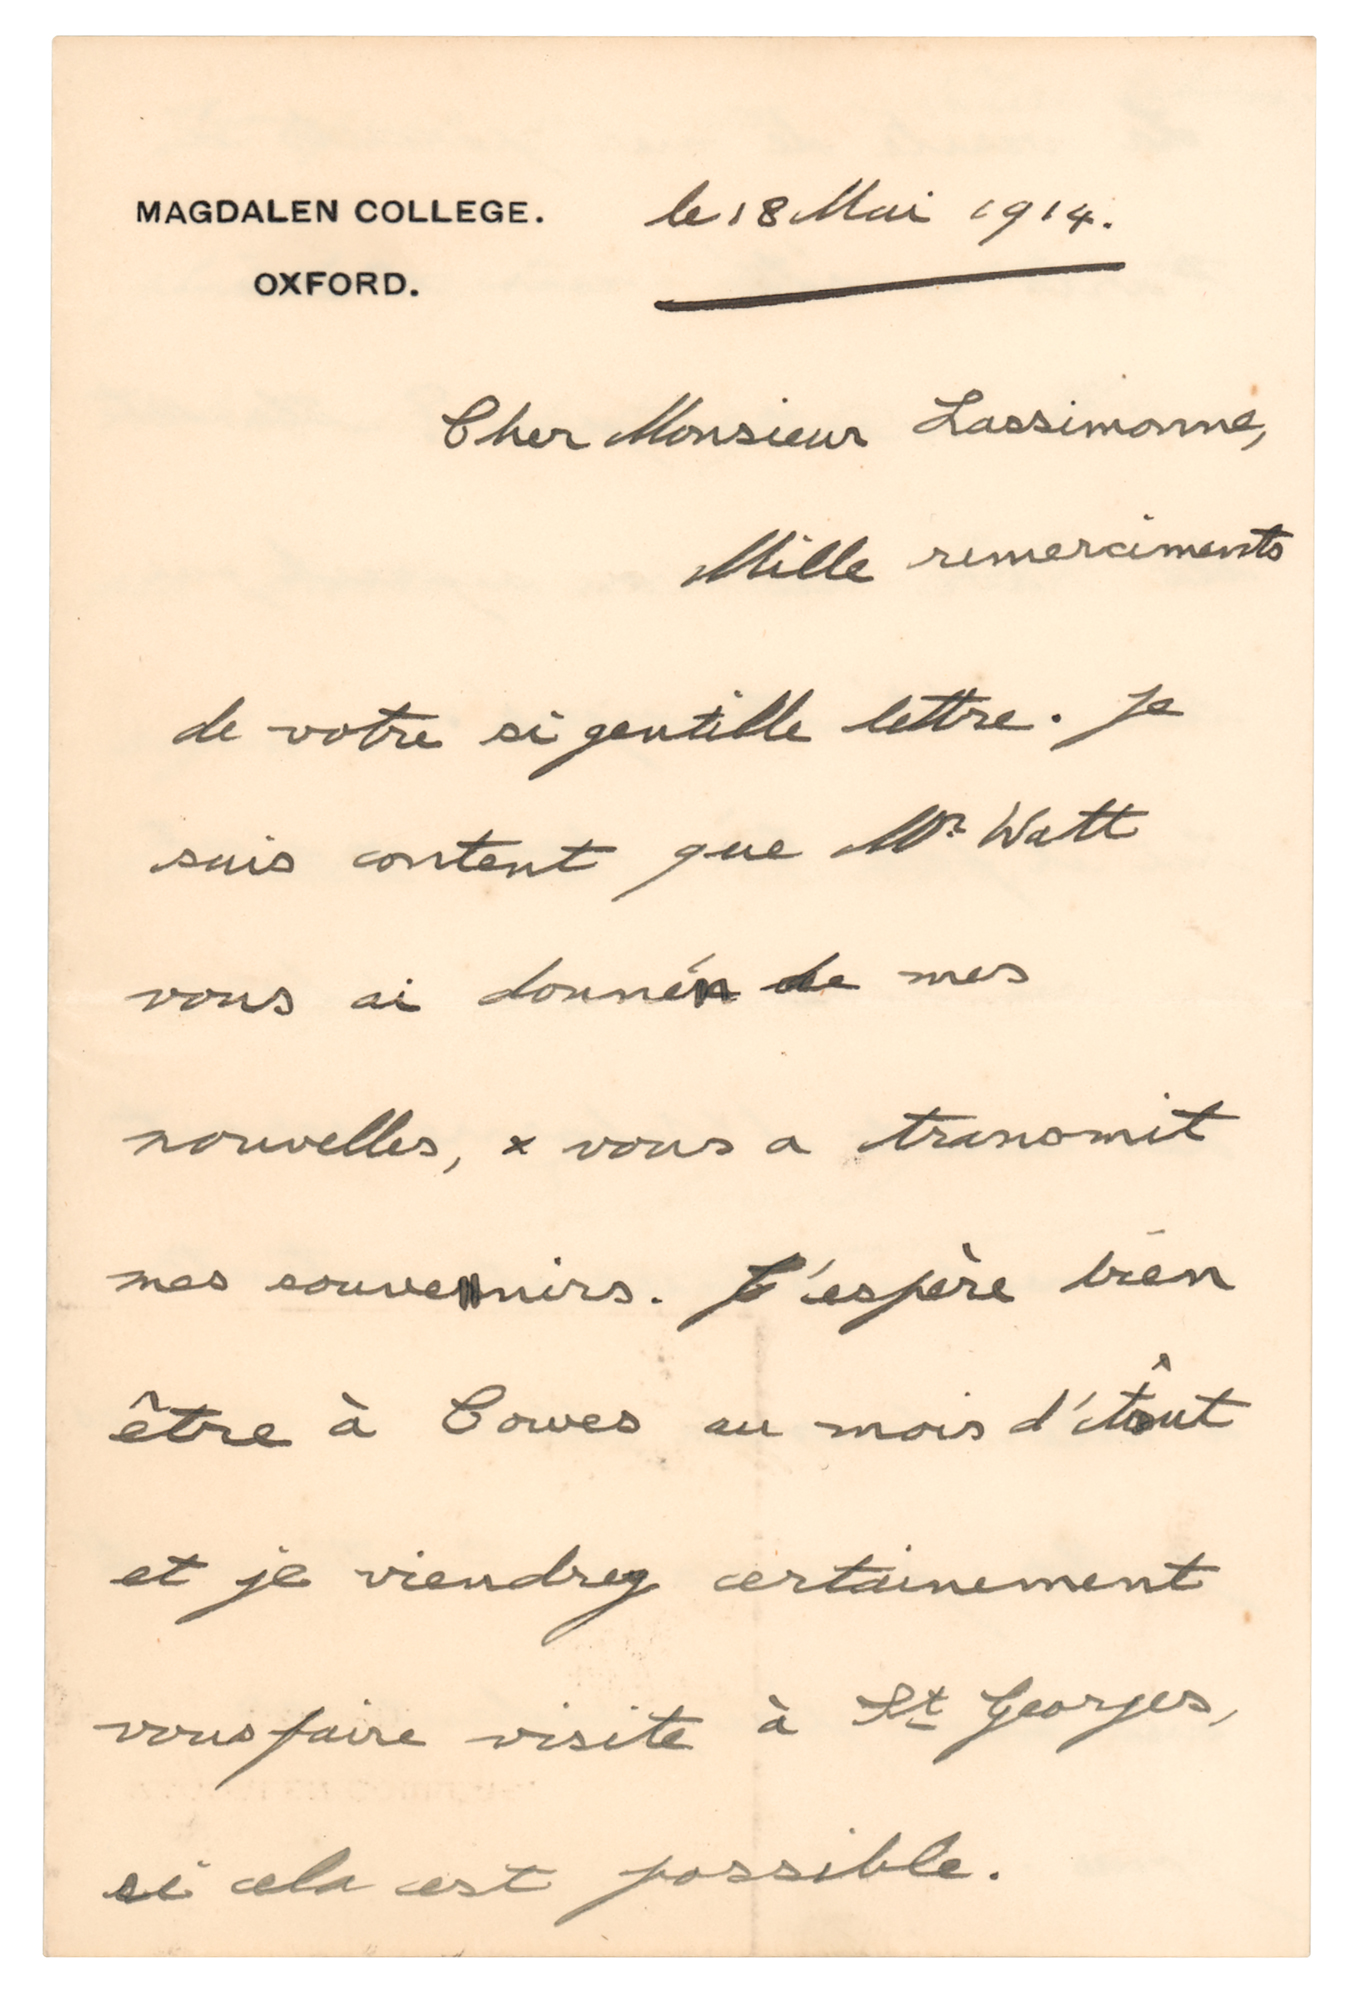 MAGDALEN COLLEGE. le 18 Mai 1914.
OXFORD.
Cher Monsieur Lassimonne,
Mille remerciments
de votre si gentille lettre. Je
suis content que Mr Watt
vous ai donné de mes
nouvelles, & vous a transmit
mes souvenirs. J'espère bien
être à Cowes au mois d'Aôut
et je viendrez certainement
vous faire visite à St Georges,
si cela est possible.